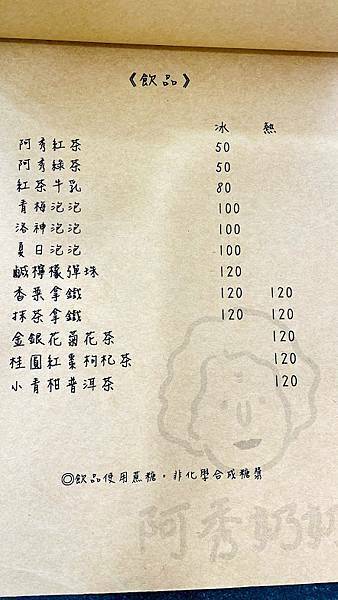 《飲品》
冰 熱
阿秀紅茶 50
阿秀綠茶 50
紅茶牛乳 80
青梅泡泡 100
洛神泡泡 100
夏日泡泡 100
鹹檸檬彈珠 120
香蘭拿鐵 120 120
抹茶拿鐵 120 120
金銀花菊花茶 120
桂圓紅棗枸杞茶 120
小青柑普洱茶 120
◎飲品使用蔗糖，非化學合成糖漿
阿秀奶奶